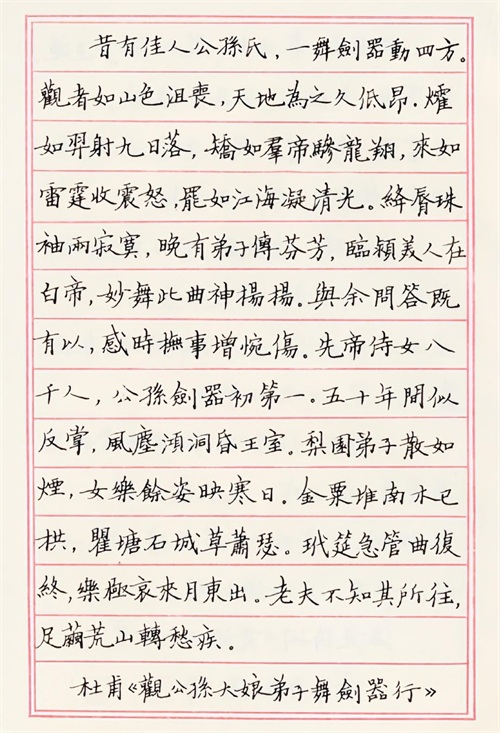 昔有佳人公孫氏，一舞劍器動四方。
觀者如山色沮喪，天地為之久低昂．㸌
如羿射九日落，矯如羣帝驂龍翔，來如
雷霆收震怒，罷如江海凝清光。絳脣珠
袖兩寂寞，晚有弟子傳芬芳，臨潁美人在
白帝，妙舞此曲神揚揚。與余問答既
有以，感時撫事增惋傷。先帝侍女八
千人，公孫劍器初第一。五十年間似
反掌，風塵澒洞昏王室。梨園弟子散如
煙，女樂餘姿映寒日．金粟堆南木已
栱，瞿塘石城草蕭瑟。玳筵急管曲復
終，樂極哀來月東出。老夫不知其所往，
足繭荒山轉愁疾。
杜甫《觀公孫大娘弟子舞劍器行》